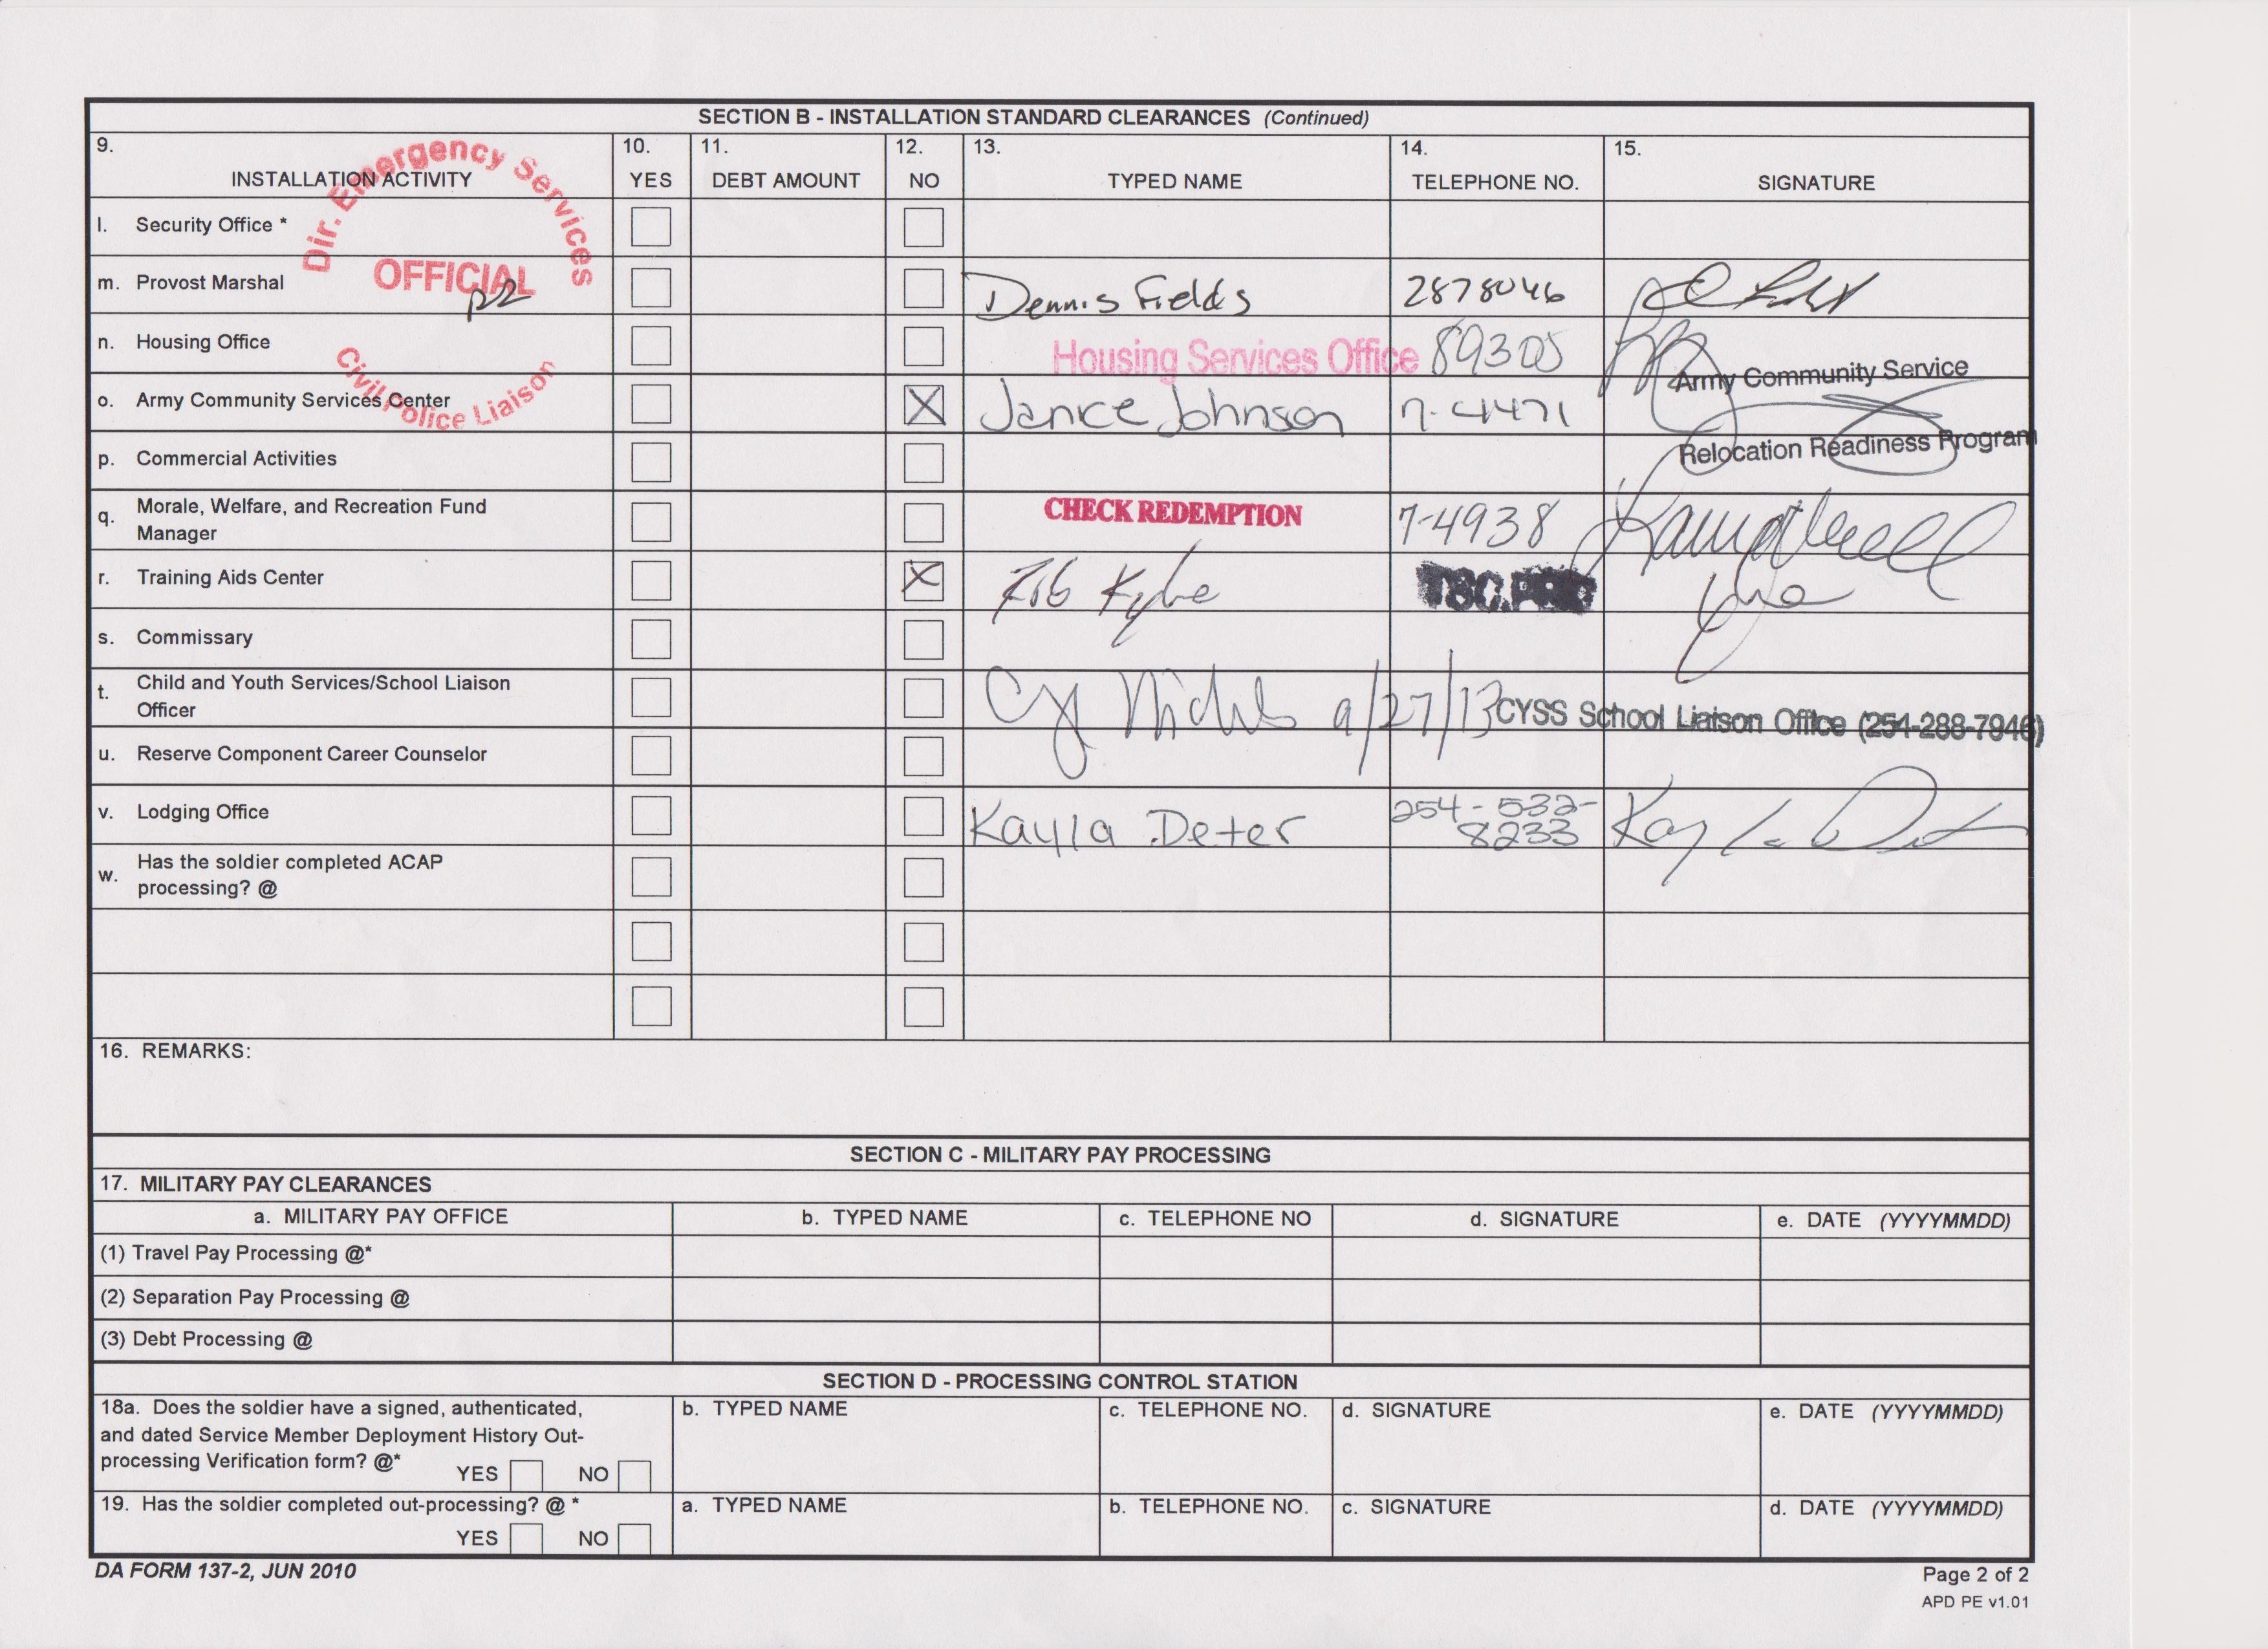 SECTION B - INSTALLATION STANDARD CLEARANCES (Continued)
9. INSTALLATION ACTIVITY
10. YES
11. DEBT AMOUNT
12. NO
13. TYPED NAME
14. TELEPHONE NO.
15. SIGNATURE
Dir. Emergency Services
OFFICIAL
Civil Police Liaison
l. Security Office *
m. Provost Marshal Dennis Fields 2878046
n. Housing Office Housing Services Office 89305
o. Army Community Services Center X Janice Johnson 7-4471 Army Community Service
Relocation Readiness Program
p. Commercial Activities
q. Morale, Welfare, and Recreation Fund
Manager CHECK REDEMPTION 7-4938
r. Training Aids Center X
s. Commissary
t. Child and Youth Services/School Liaison
Officer 9/27/13 CYSS School Liaison Office (254-288-7946)
u. Reserve Component Career Counselor
v. Lodging Office Kayla Deter 254-532-
8233 Kayla
w. Has the soldier completed ACAP
processing? @
16. REMARKS:
SECTION C - MILITARY PAY PROCESSING
17. MILITARY PAY CLEARANCES
a. MILITARY PAY OFFICE b. TYPED NAME c. TELEPHONE NO d. SIGNATURE e. DATE (YYYYMMDD)
(1) Travel Pay Processing @*
(2) Separation Pay Processing @
(3) Debt Processing @
SECTION D - PROCESSING CONTROL STATION
18a. Does the soldier have a signed, authenticated,
and dated Service Member Deployment History Out-
processing Verification form? @*
YES NO
b. TYPED NAME c. TELEPHONE NO. d. SIGNATURE e. DATE (YYYYMMDD)
19. Has the soldier completed out-processing? @ *
YES NO
a. TYPED NAME b. TELEPHONE NO. c. SIGNATURE d. DATE (YYYYMMDD)
DA FORM 137-2, JUN 2010
Page 2 of 2
APD PE v1.01